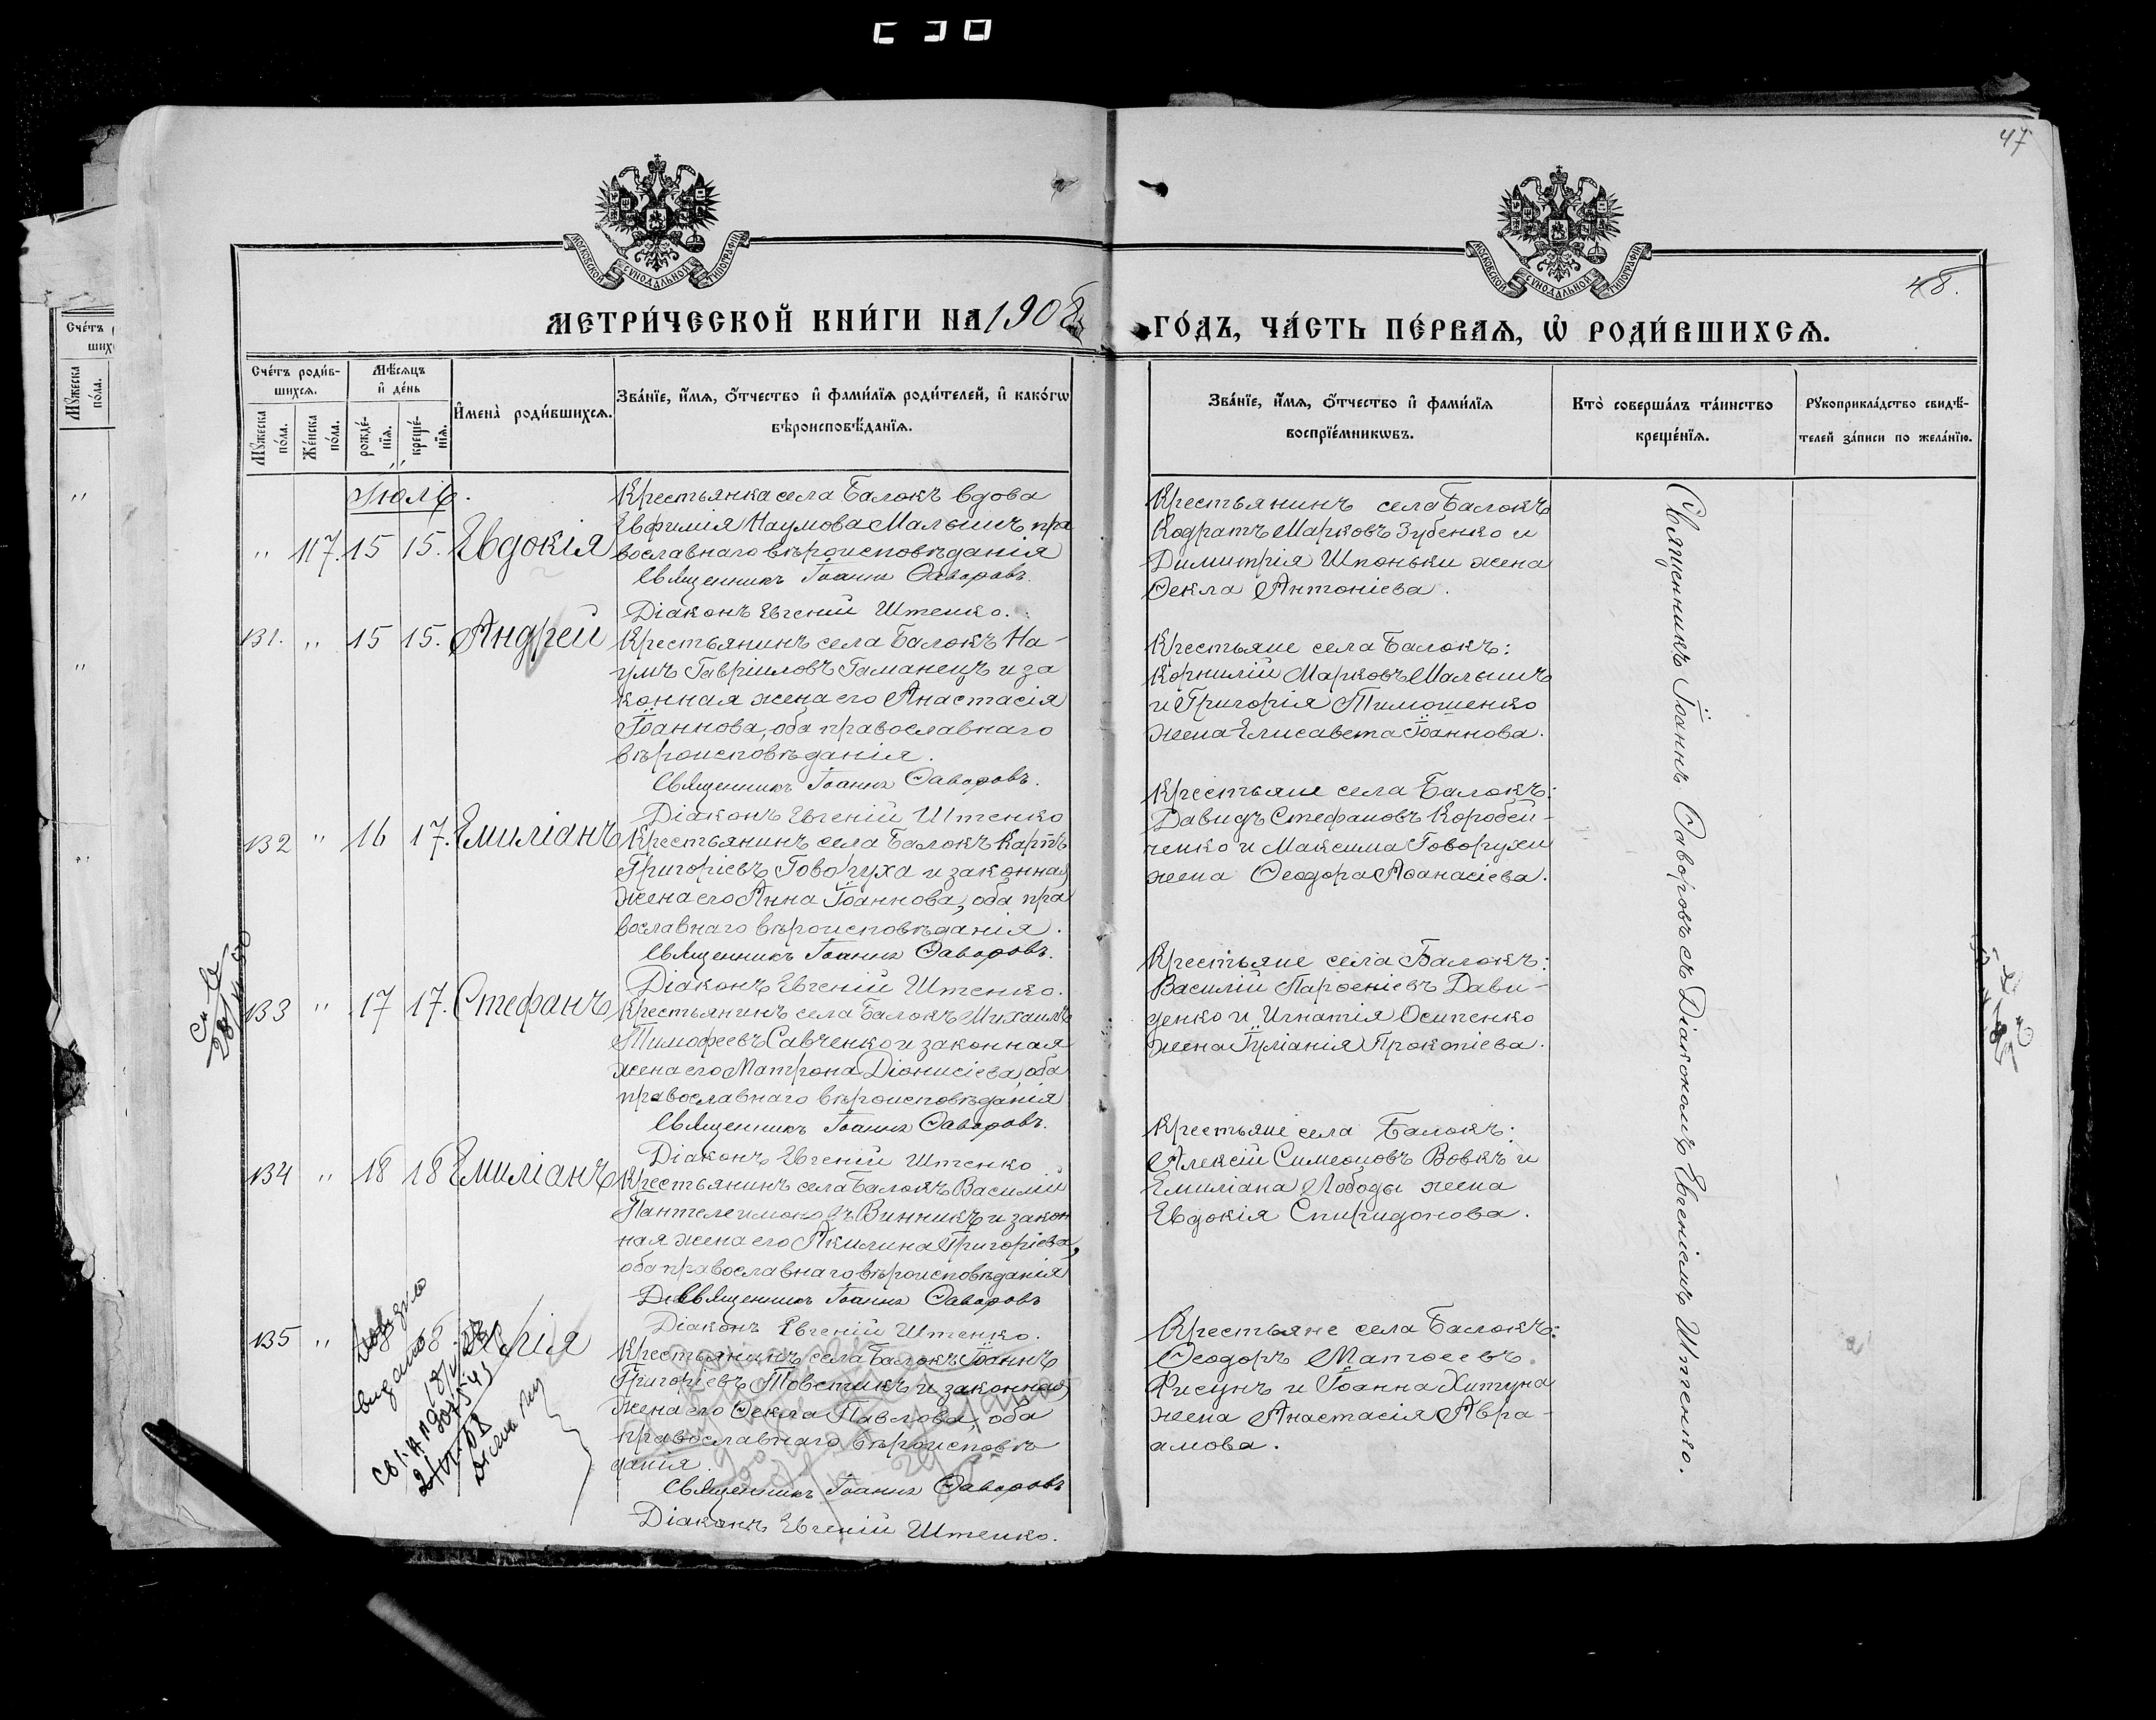 47
МОСКОВСКОЙ СУНОДАЛЬНОЙ ТИПОГРАФІИ
МОСКОВСКОЙ СУНОДАЛЬНОЙ ТИПОГРАФІИ
48.
МЕТРИ́ЧЕСКОЙ КНИ́ГИ НА 1908
ГО́ДЪ, ЧА́СТЬ ПЕ́РВАѦ, Ѡ҆ РОДИ́ВШИХСѦ.
Сче́тъ роди́в-
шихсѧ.
Мѣ́сѧцъ
и҆ де́нь
Мꙋ́жеска по́ла.
Же́нска по́ла.
рожде́-
нїѧ.
креще́-
нїѧ.
И҆мена̀ роди́вшихсѧ.
Зва́нїе, и҆́мѧ, ѻ҆́тчество и҆ фами́лїѧ роди́телей, и҆ како́гѡ
вѣроисповѣ́данїѧ.
Зва́нїе, и҆́мѧ, ѻ҆́тчество и҆ фами́лїѧ
воспрїе́мникѡвъ.
Кто̀ соверша́лъ та́инство
креще́нїѧ.
Рꙋкоприкла́дство свидѣ́-
телей за́писи по жела́нїю.
Іюль.
" 117. 15 15. Евдокія
Крестьянка села Балокъ вдова
Евфимія Наумова Малышъ пра
вославнаго вѣроисповѣданія
Священникъ Іоаннъ Ѳаворовъ.
Діаконъ Евгеній Штенко.
Крестьянинъ села Балокъ
Кодратъ Марковъ Зубенко и
Димитрія Шпоньки жена
Ѳекла Антоніева.
131. " 15 15. Андрей
Крестьянинъ села Балокъ На-
умъ Гавріиловъ Гаманецъ и за
конная жена его Анастасія
Іоаннова, оба православнаго
вѣроисповѣданія.
Священникъ Іоаннъ Ѳаворовъ.
Діаконъ Евгеній Штенко
Крестьяне села Балокъ:
Корнилій Марковъ Малышъ
и Григорія Тимошенко
жена Елисавета Іоаннова.
132 " 16 17. Емиліанъ
Крестьянинъ села Балокъ Карпъ
Григоріевъ Говоруха и законная
жена его Анна Іоаннова, оба пра
вославнаго вѣроисповѣданія.
Священникъ Іоаннъ Ѳаворовъ.
Діаконъ Евгеній Штенко.
Крестьяне села Балокъ:
Давидъ Стефановъ Коробей-
ченко и Максима Говорухи
жена Ѳеодора Аѳанасіева.
133 " 17 17. Стефанъ
Крестьянинъ села Балокъ Михаилъ
Тимофеевъ Савченко и законная
жена его Матрона Діонисіева, оба
православнаго вѣроисповѣданія
Священникъ Іоаннъ Ѳаворовъ.
Діаконъ Евгеній Штенко
Крестьяне села Балокъ:
Василій Парѳеніевъ Дави-
денко и Игнатія Осипенко
жена Іуліанія Прокопіева.
134 " 18 18 Емиліанъ
Крестьянинъ села Балокъ Василій
Пантелеимоновъ Винникъ и закон
ная жена его Акилина Григоріева,
оба православнаго вѣроисповѣданія
Священникъ Іоаннъ Ѳаворовъ
Діаконъ Евгеній Штенко.
Крестьяне села Балокъ:
Алексій Симеоновъ Вовкъ и
Емиліана Лободы жена
Евдокія Спиридонова.
135 "
Крестьянинъ села Балокъ Іоаннъ
Григоріевъ Товстикъ и законная
жена его Ѳекла Павлова, оба
православнаго вѣроисповѣ
данія.
Священникъ Іоаннъ Ѳаворовъ
Діаконъ Евгеній Штенко.
Крестьяне села Балокъ:
Ѳеодоръ Матѳеевъ
Фисунъ и Іоанна Хитуна
жена Анастасія Авра-
амова.
Священникъ Іоаннъ Ѳаворовъ съ Діакономъ Евгеніемъ Штенко.